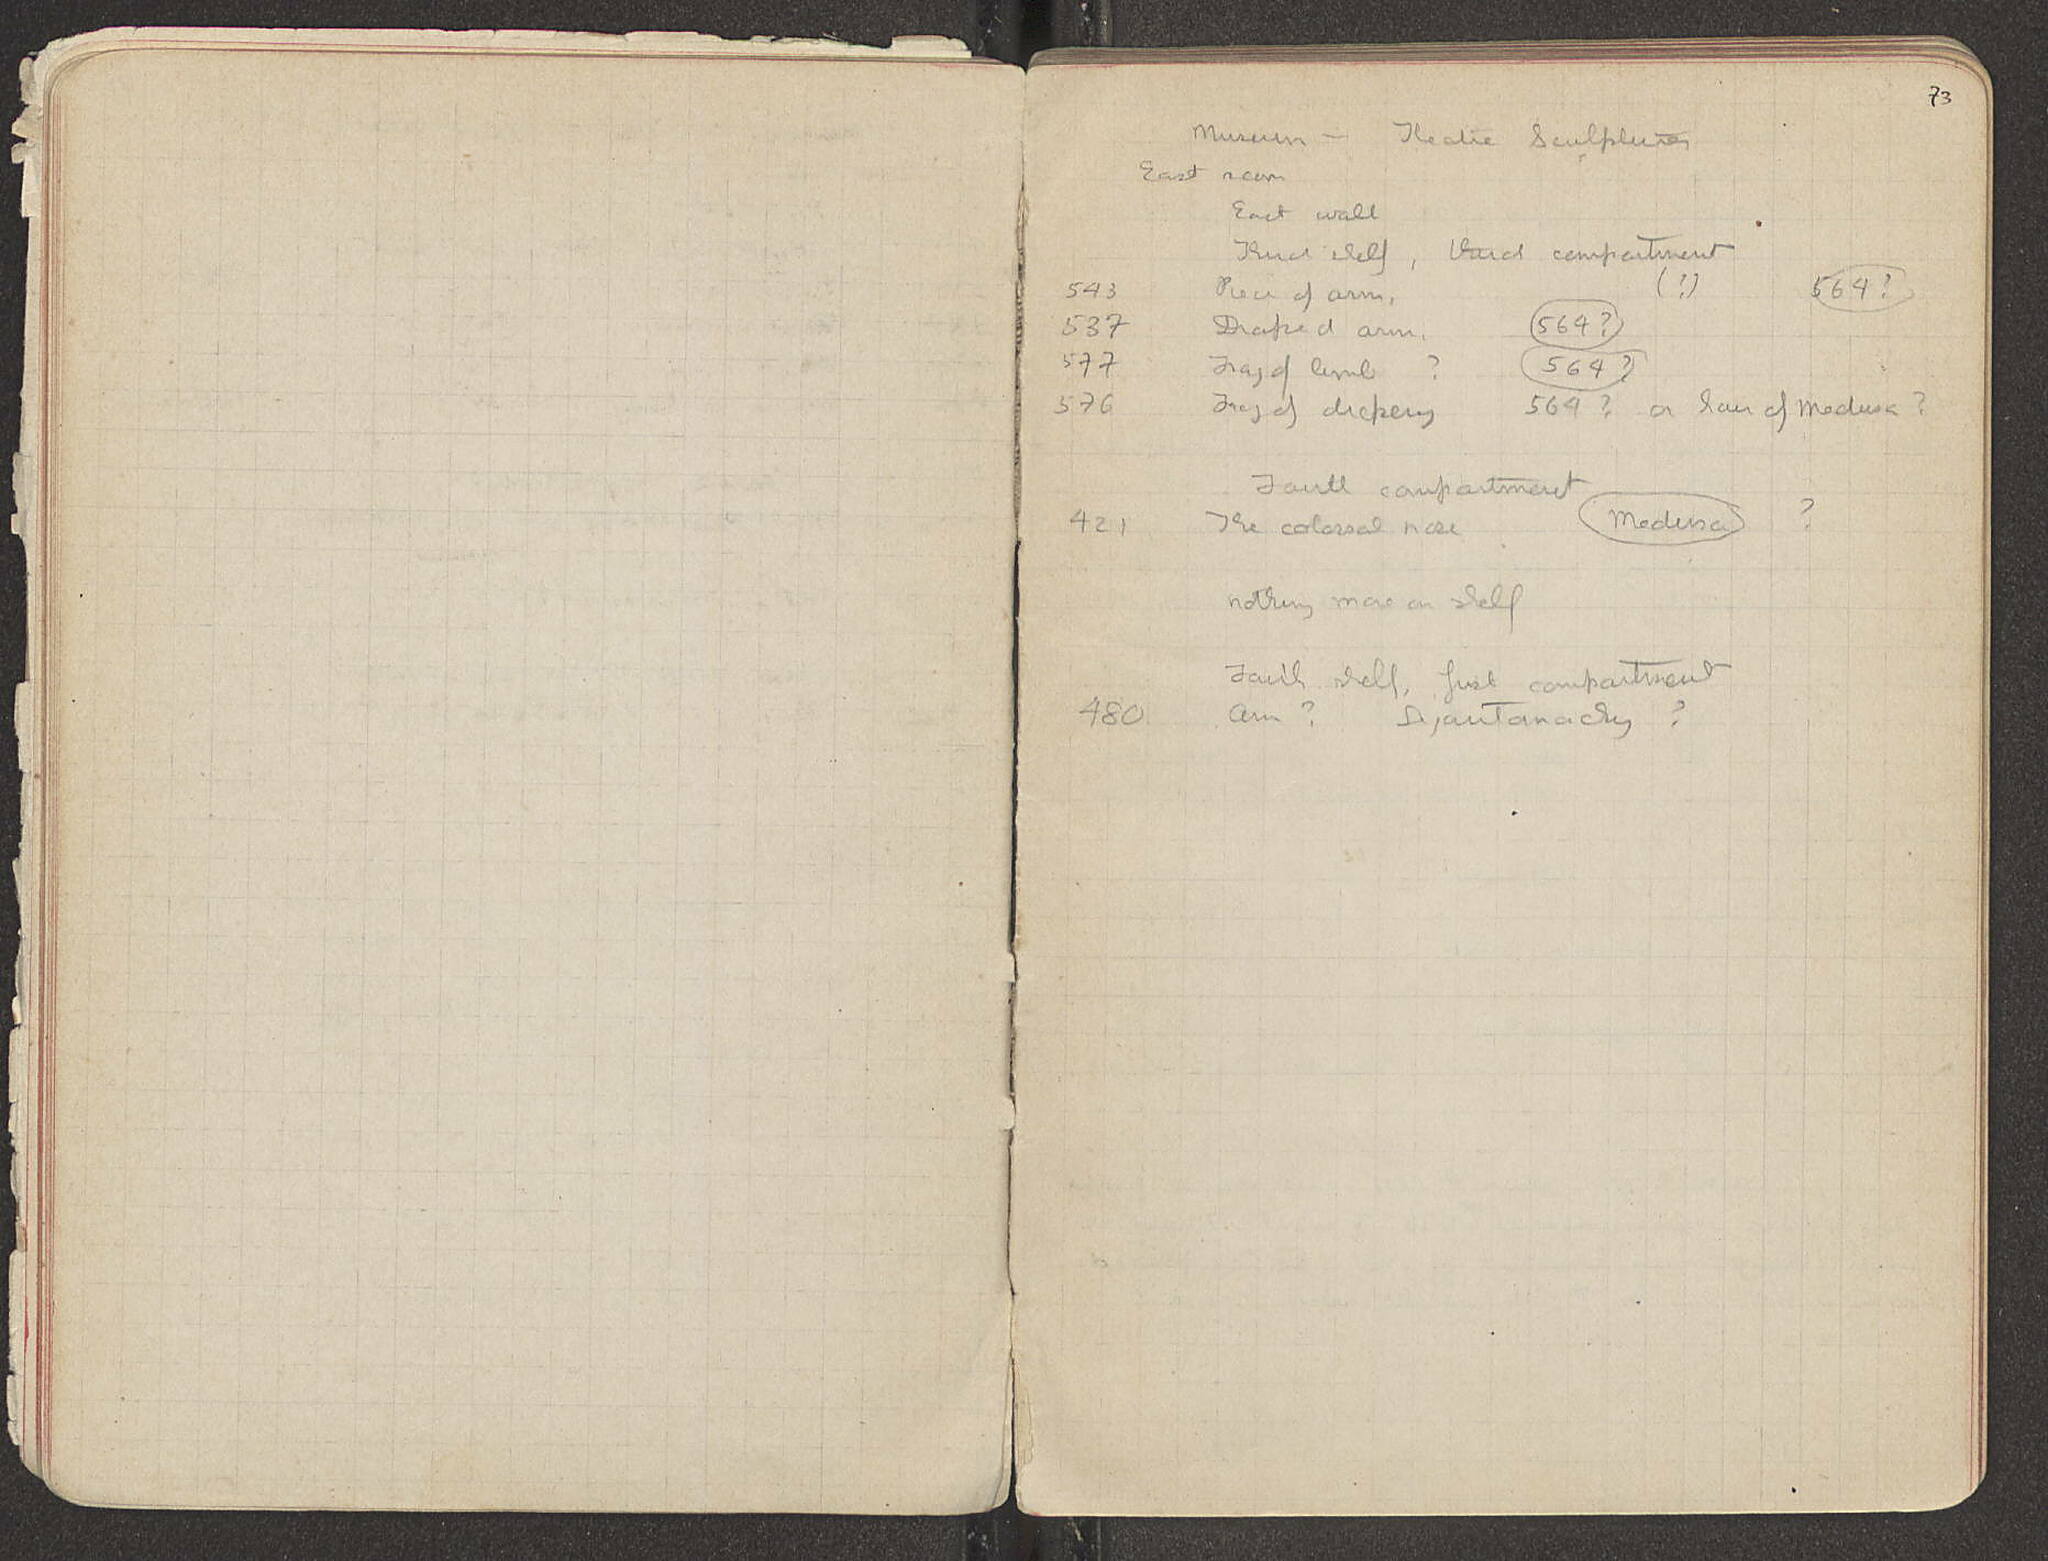 73
Museum — Theatre Sculptures
East room
East wall
Third shelf, third compartment
543 Piece of arm. (?) 564?
537 Draped arm. 564?
577 Frag of limb ? 564?
576 Frag of drapery 564? or hair of Medusa?
Fourth compartment
421 The colossal nose Medusa ?
nothing more on shelf
Fourth shelf, first compartment
480 Arm? Gigantomachy ?